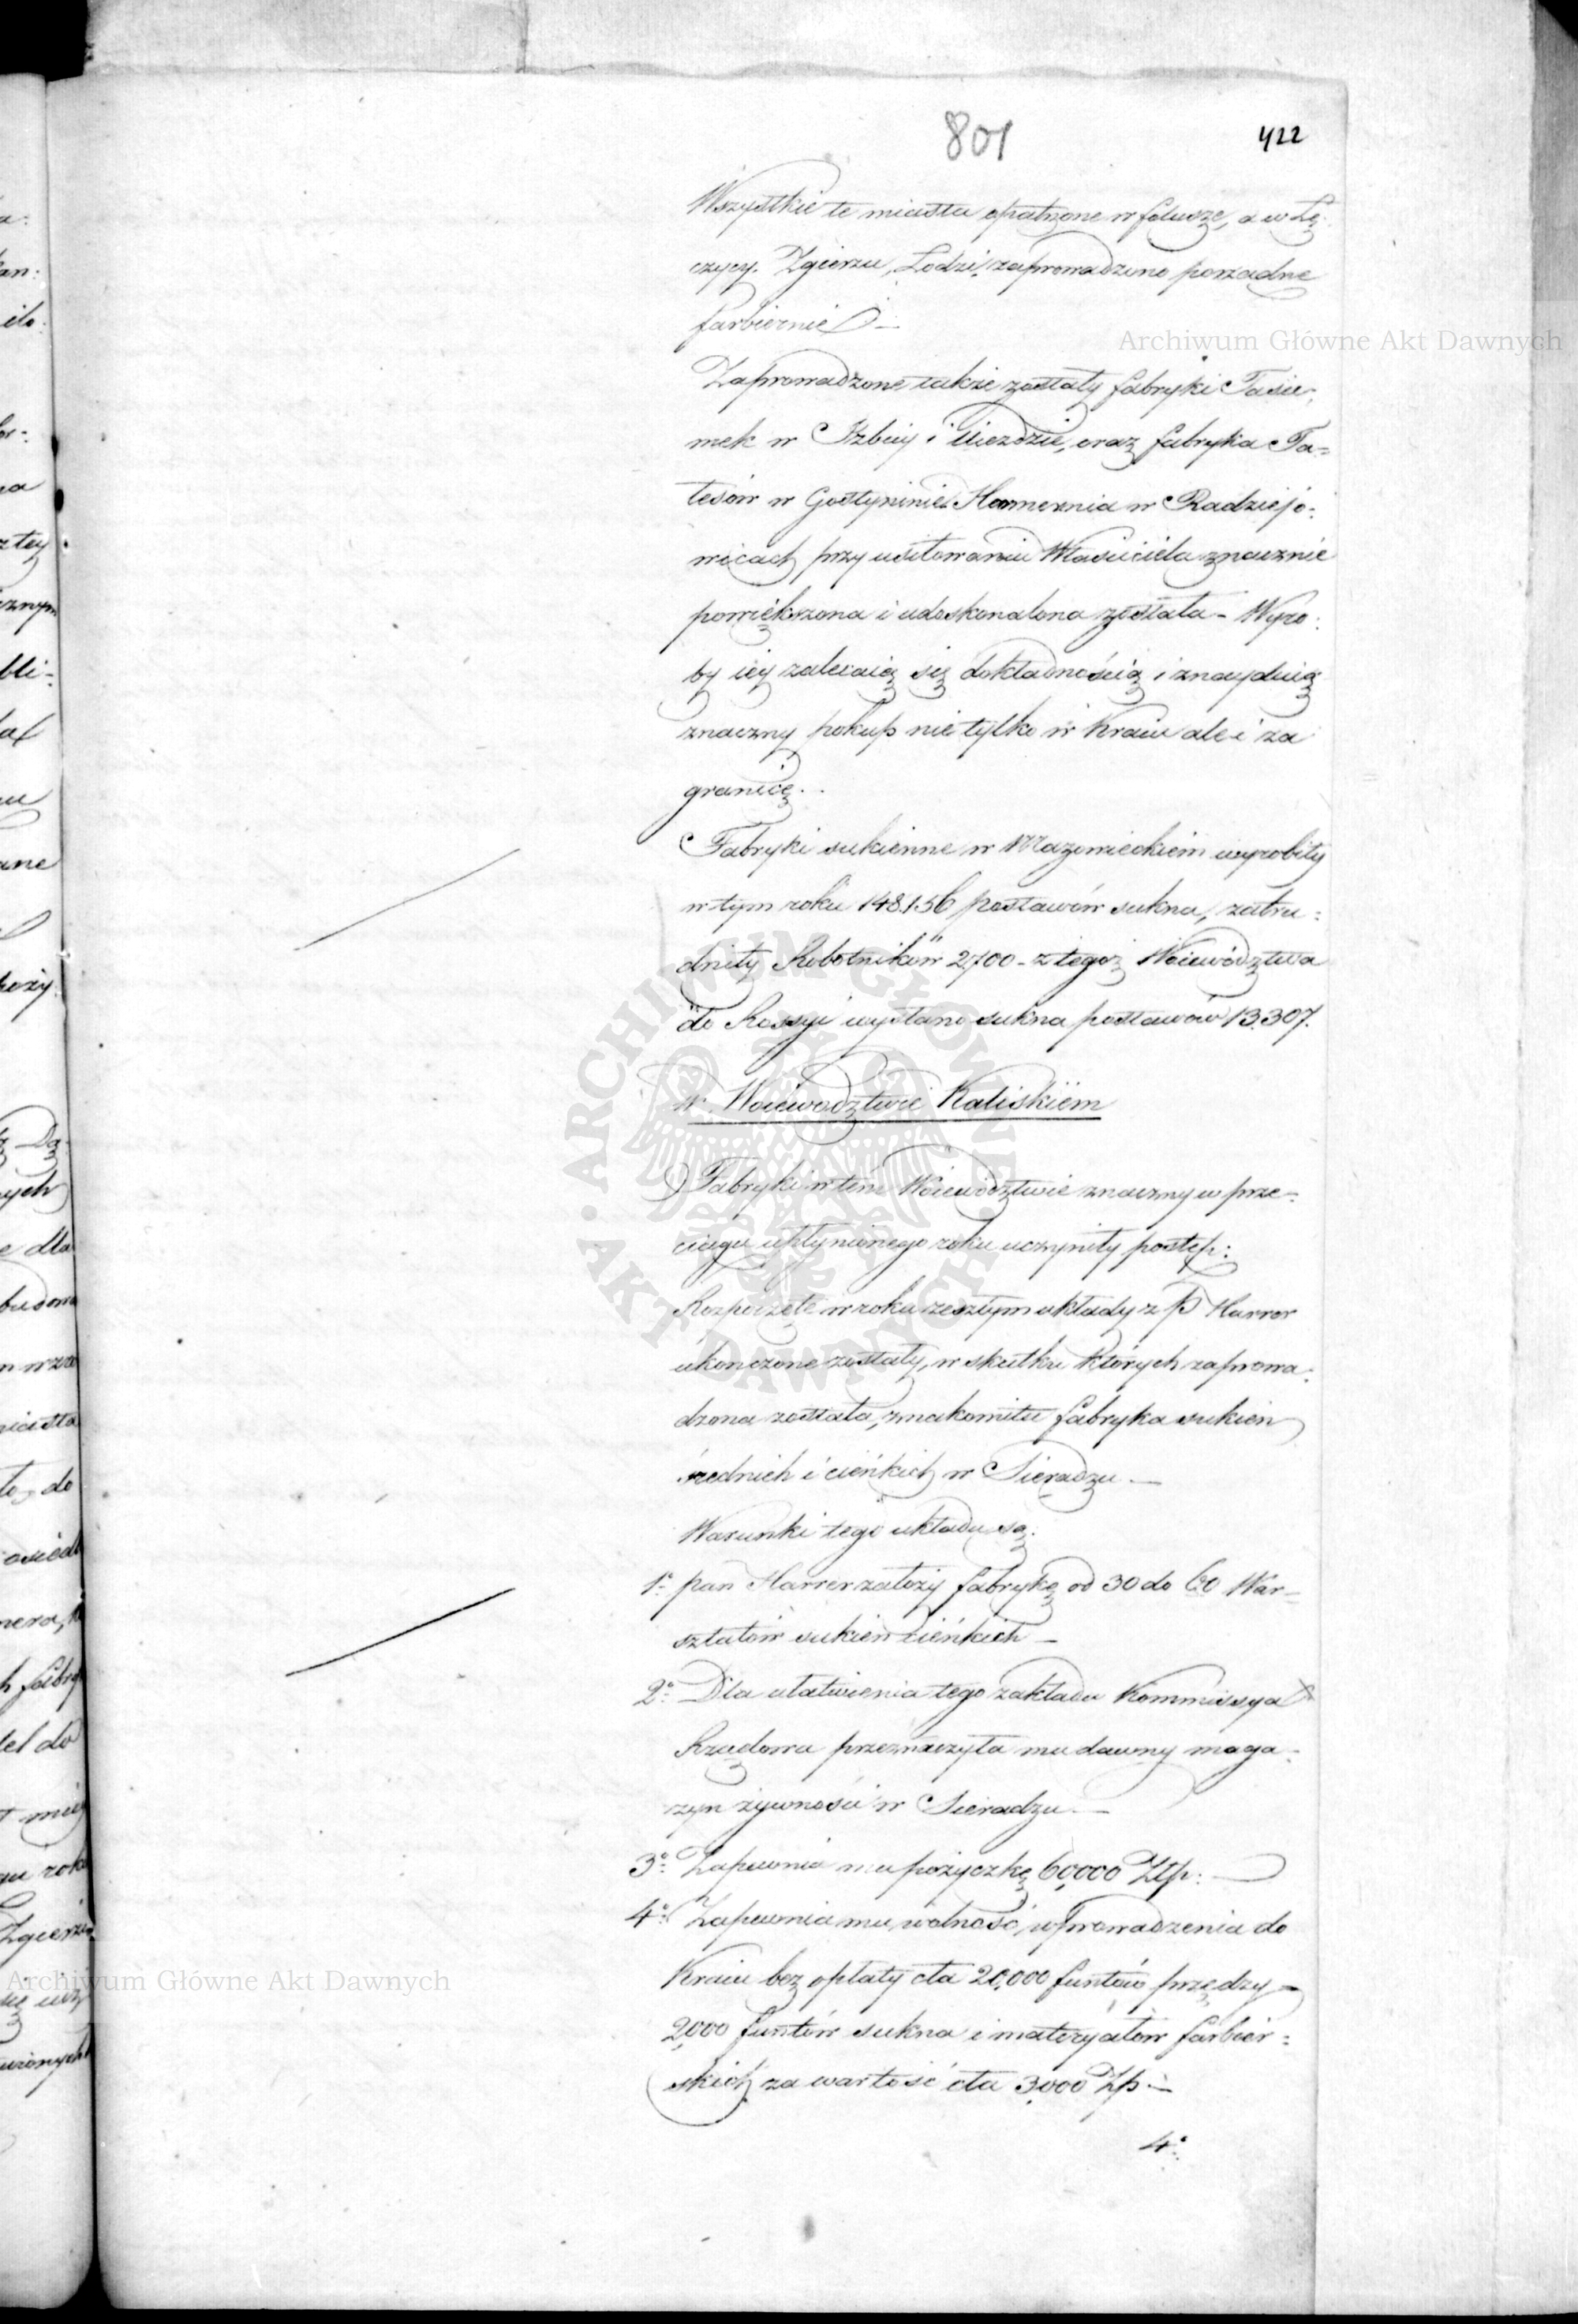 801
422
Wszystkie te miasta opatrzone w folusze, a w Łę:
czycy. Zgierzu, Łodzi, zaprowadzono porządne
farbiernie. —
Zaprowadzone także zostały fabryki Tasie,
mek w Izbicy i Uieździe, oraz fabryka Ta-
lesów w Gostyninie. Hamernia w Radziejo:
wicach przy usiłowaniu Właściciela znacznie
powiększona i udoskonalona została - Wyro:
by iey zalecaią się dokładnością i znayduią
znaczny pokup nie tylko w Kraiu ale i za
granicę. .
Fabryki sukienne w Mazowieckiem wyrobiły
w tym roku 148.156 postawów sukna, zatru:
dniły Robotników 2,700 - z tegoż Woiewództwa
do Rossyi wysłano sukna postawów 13.307.
W. Woiewodztwie Kaliskiem
Fabryki w tém Woiewództwie znaczny w prze-
ciągu upłynionego roku uczyniły postęp:
Rozpoczęte w roku zeszłym układy z P. Harrer
ukończone zostały, w skutku których zaprowa:
dzona została, znakomita fabryka sukien
średnich i cieńkich w Sieradzu. —
Warunki tego układu są.
1° pan Harrer założy fabrykę od 30 do 60 War-
sztatów sukien cieńkich —
2° Dla ułatwienia tego zakładu Kommissya
Rządowa przeznaczyła mu dawny maga:
zyn żywności w Sieradzu. —
3° Zapewnia mu pożyczkę 60,000 Złp: —
4° Zapewnia mu wolność wprowadzenia do
Kraiu bez opłaty cła 20,000 funtów przędzy
2,000 funtów sukna i materyałów farbier:
skich za wartość cła 3,000 Zp. —
4°
Archiwum Główne Akt Dawnych
Archiwum Główne Akt Dawnych
ARCHIWUM GŁÓWNE AKT DAWNYCH